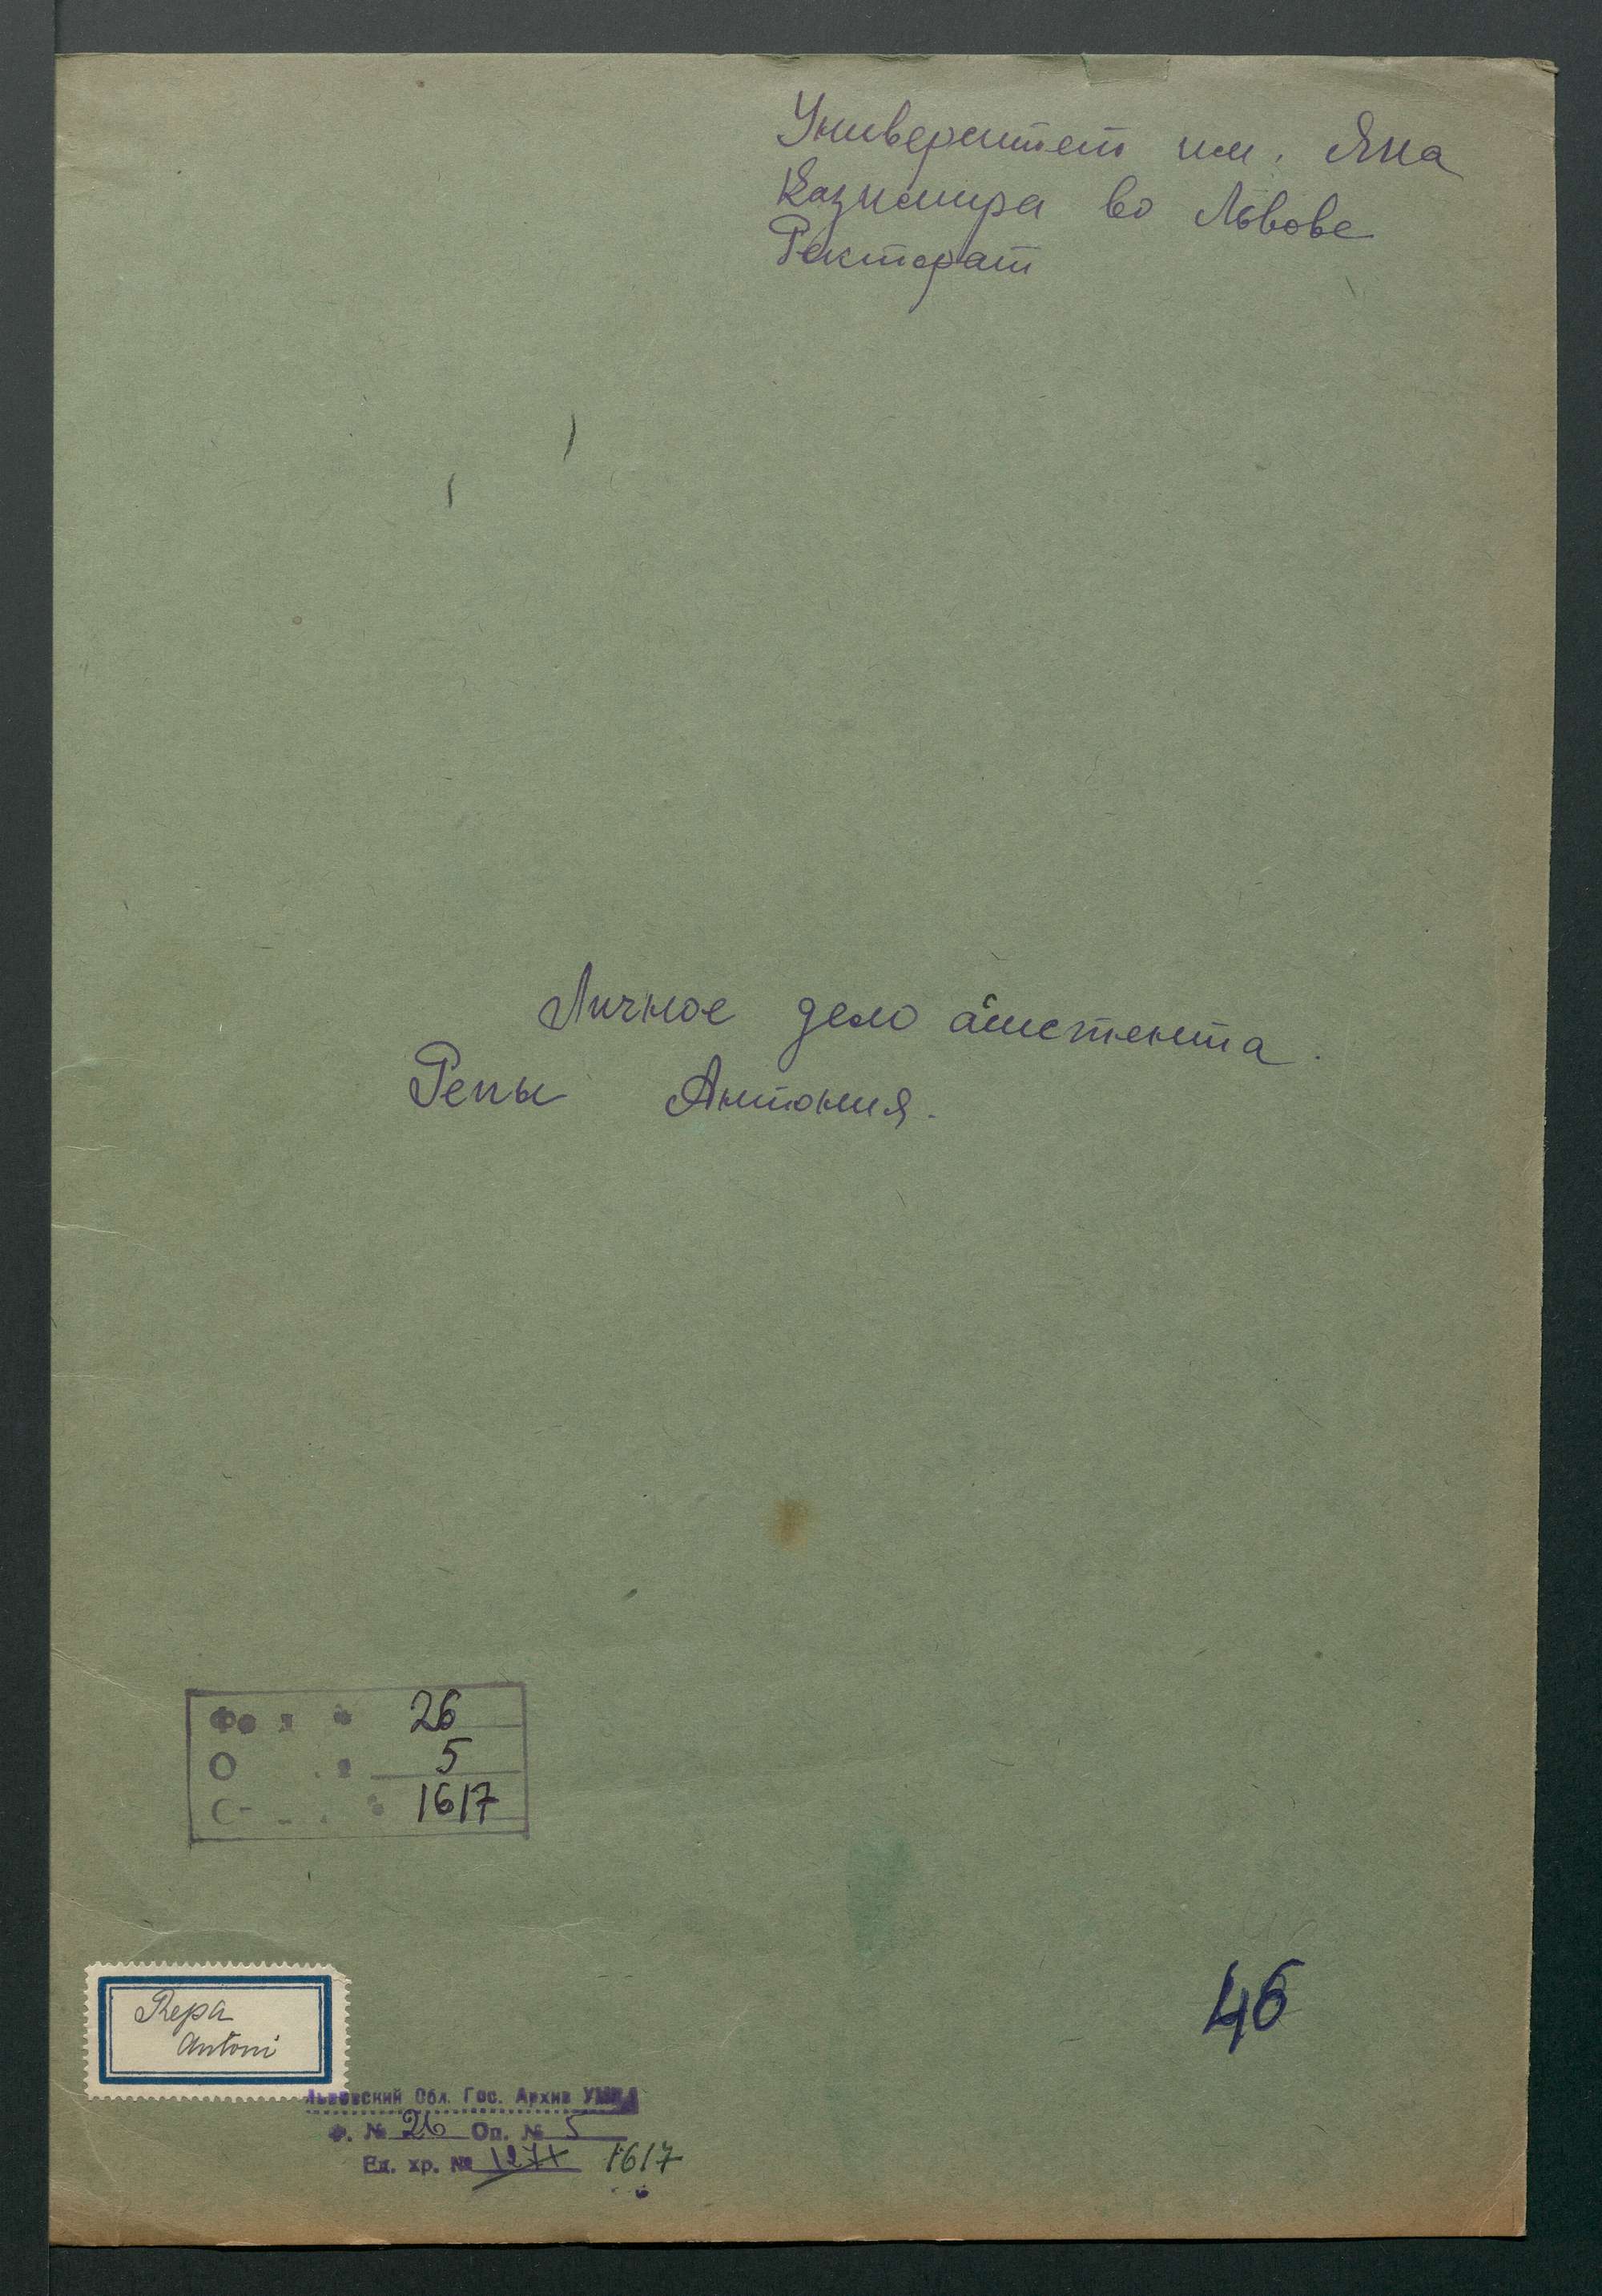 Университет им. Яна
Казимира во Львове
Ректорат
Личное дело асистента.
Репы Антония.
26
5
1617
Repa
Antoni
46
Львовский Обл. Гос. Архив
Ф. № 26 Оп. № 5
Ед. хр. № 1271 1617